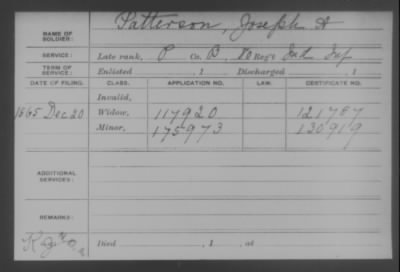 NAME OF SOLDIER: Patterson, Joseph A
SERVICE: Late rank, P Co. B, 80 Reg't Ind Inf
TERM OF SERVICE: Enlisted , 1 Discharged , 1
DATE OF FILING. CLASS. APPLICATION NO. LAW. CERTIFICATE NO.
Invalid,
1865 Dec 20 Widow, 117920 121787
Minor, 175973 130919
ADDITIONAL SERVICES:
REMARKS:
Died , 1 , at